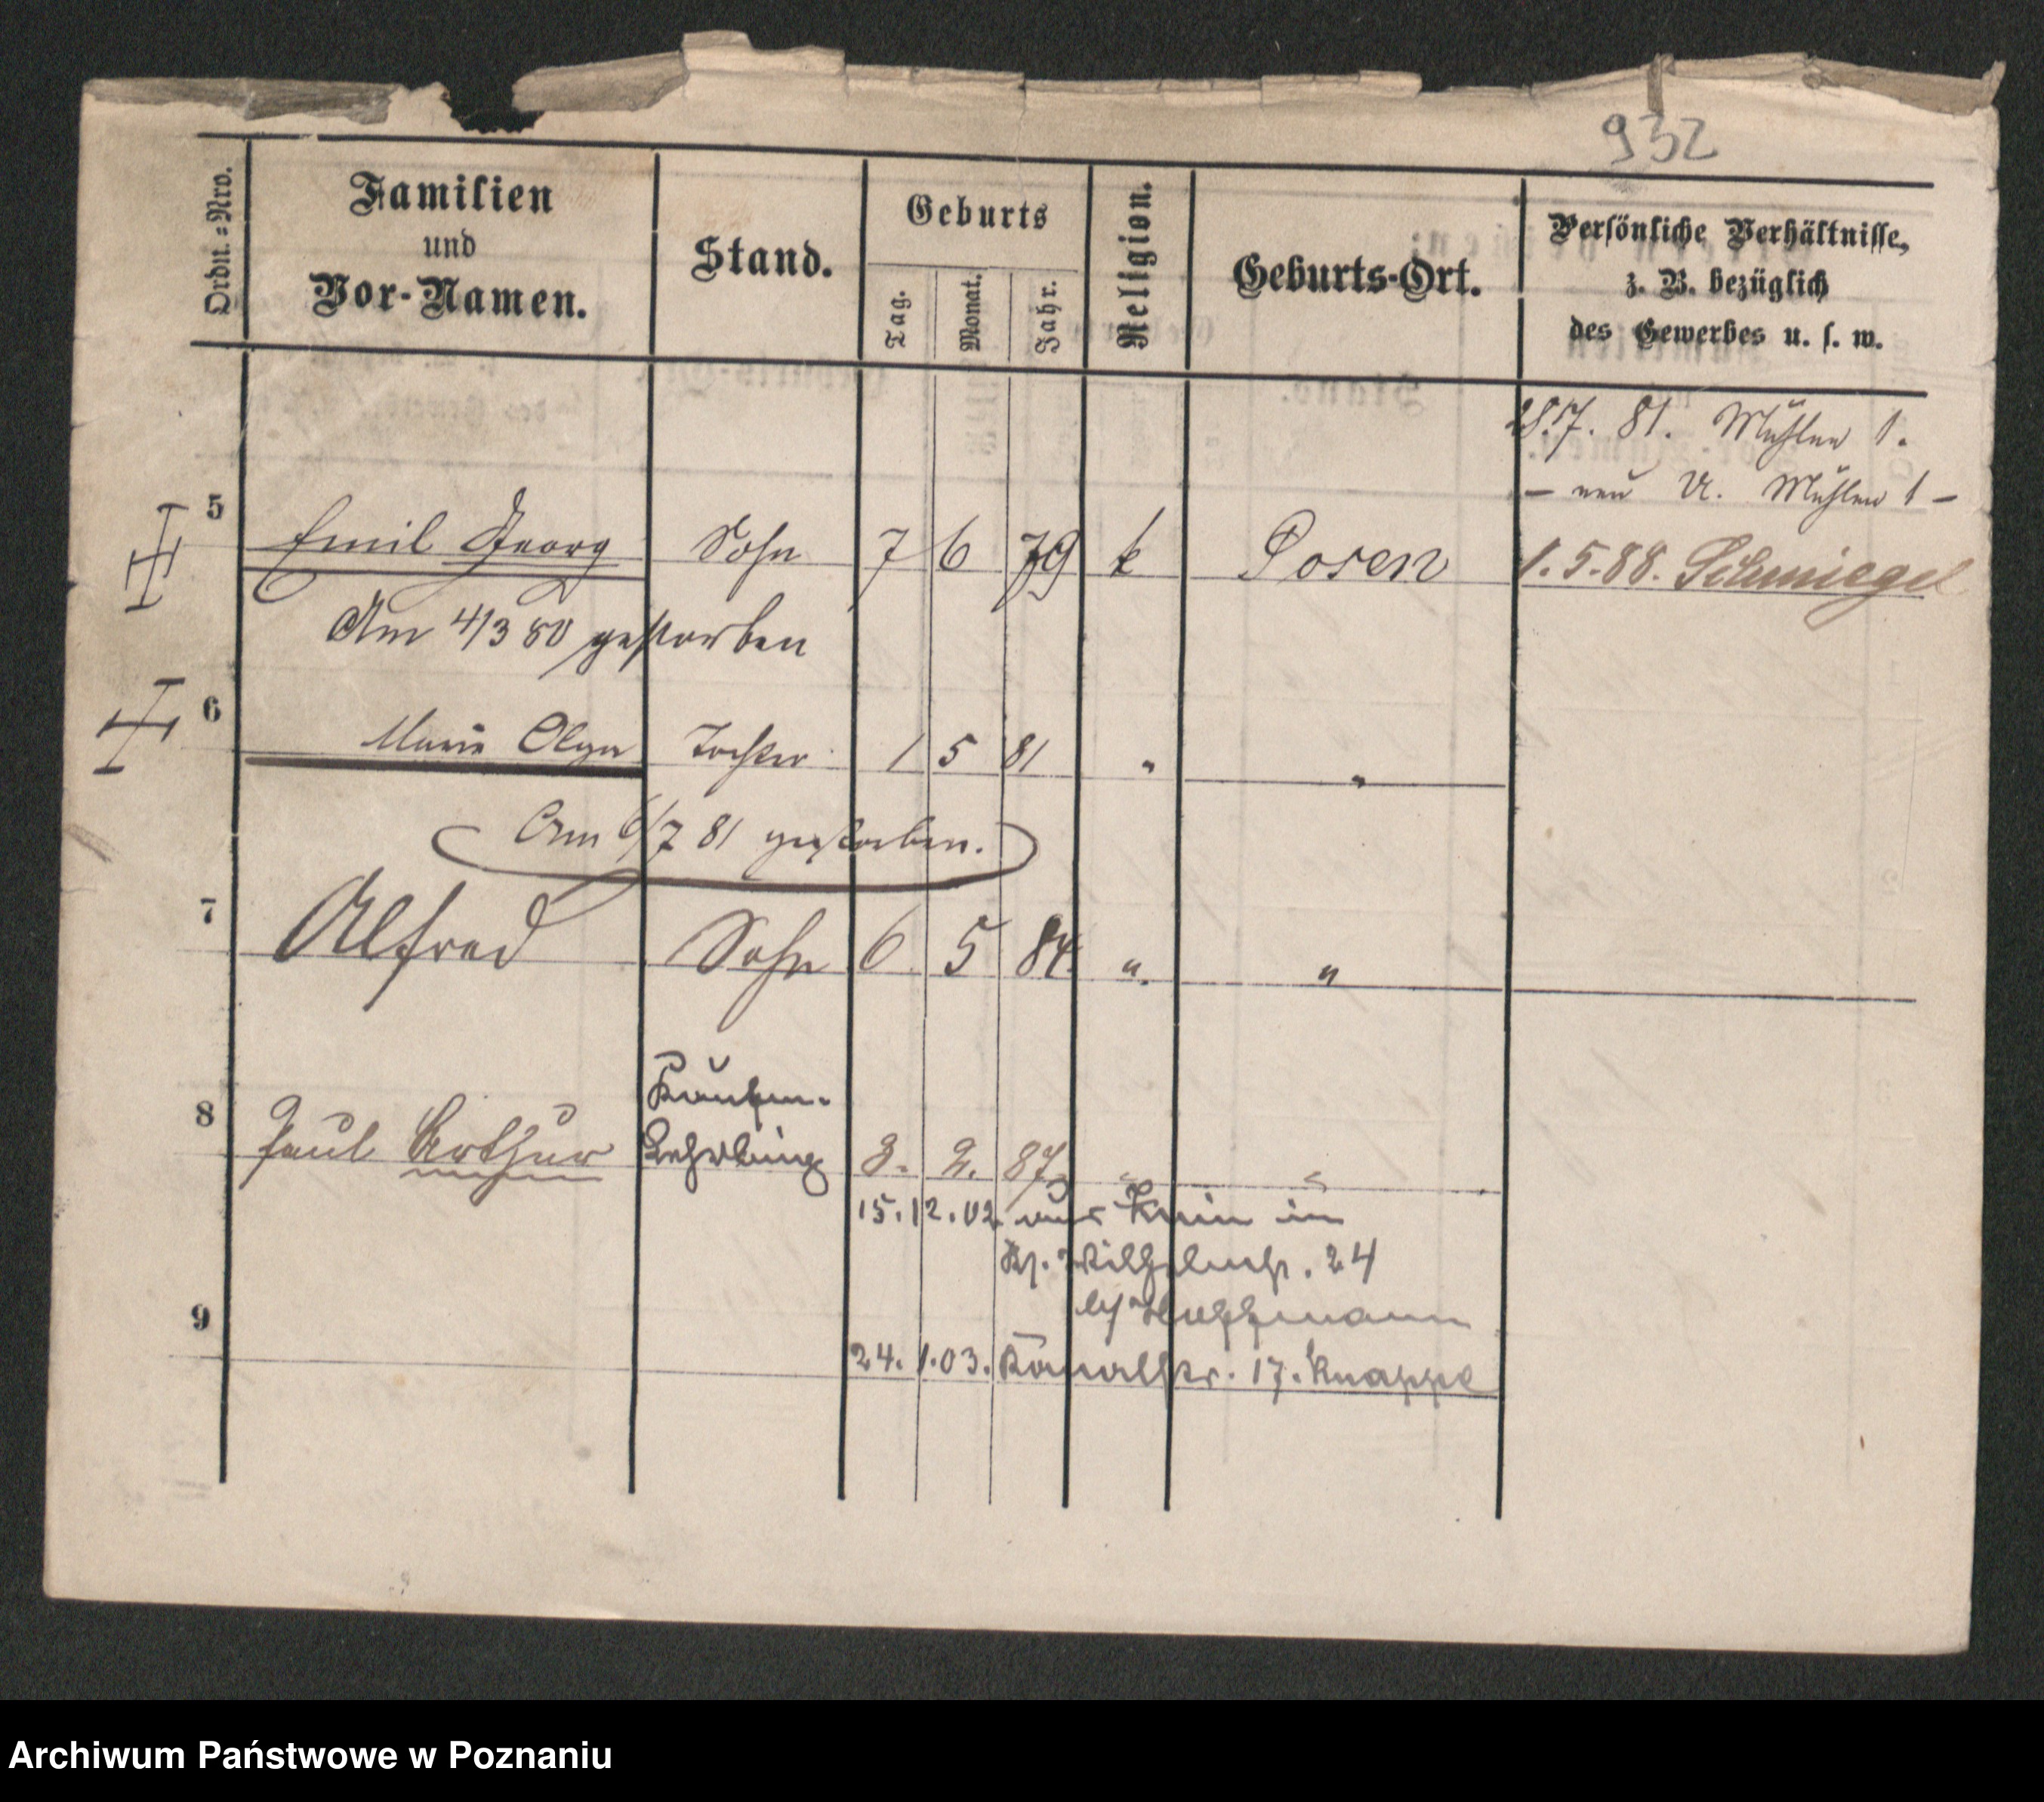 932
Ordn.-Nro.
Familien
und
Vor-Namen.
Stand.
Geburts
Tag.
Monat.
Jahr.
Religion.
Geburts-Ort.
Persönliche Verhältnisse,
z. B. bezüglich
des Gewerbes u. s. w.
28.7. 81. Mühlen 1.
– neu U. Mühlen 1 –
5 Emil Georg Sohn 7 6 79 k Posen 1.5.88. Schmiegel
Am 4/3 80 gestorben
6 Marie Olga Tochter 1 5 81 " "
Am 6/7 81 gestorben.
7 Alfred Sohn 6 5 84. " "
8 Paul Arthur Kaufm.-
Lehrling 3. 2. 87 " "
15.12.02. aus in
24
Hoffmann
9
24.1.03. Kanalstr. 17. Knappe
Archiwum Państwowe w Poznaniu